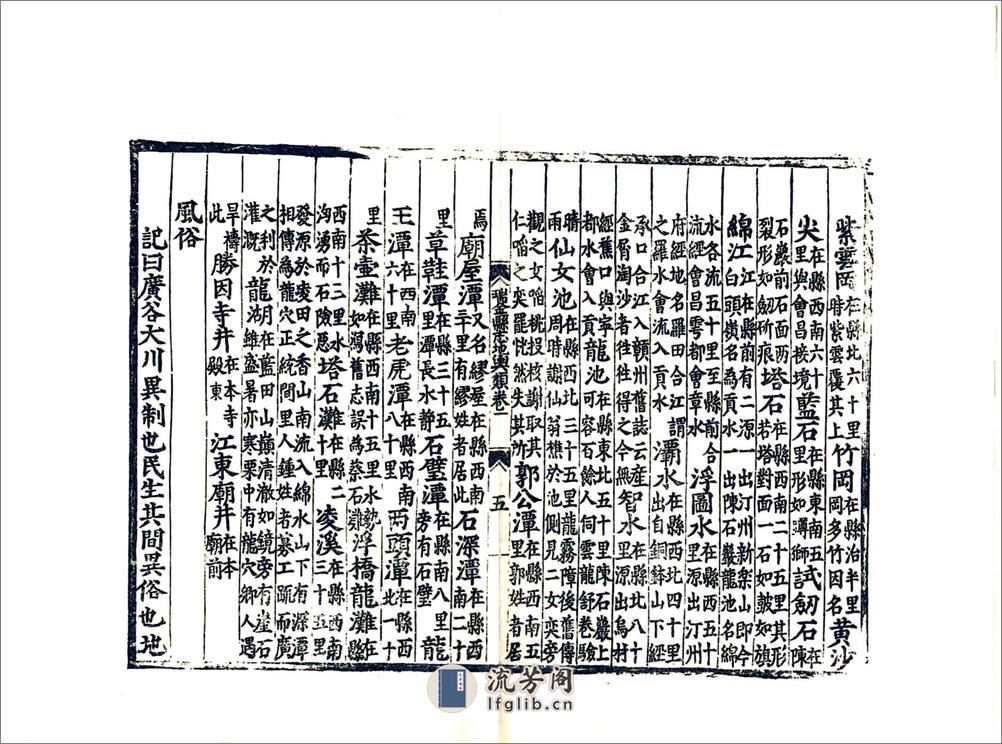 紫雲岡在縣北六十里時紫雲覆其上竹岡在縣治半里岡多竹因名黃沙
尖在縣西南六十里與會昌接境藍石在縣東南五里形如蹲獅試劒石在陳
石巖前石面兩裂形如劒斫痕塔石在縣西南二十五里其形若塔對面一石如皷如旗
綿江江在縣前有二源一出汀州新樂山即今白頭嶺名為貢水一出陳石巖龍池名綿
水各流五十里至縣前合流經會昌雩都會章水浮圖水在縣西五十里源出汀州
府經地名羅田合江謂之羅水會流入貢水灞水在縣西北四十里水出自銅鉢山下經
承口合江入贛州舊誌云産金屑淘沙者往徃得之今無智水在縣北八十里源出烏村
經蕉口與寧都水會入貢龍池在縣東北五十里陳石巖上可容百餘人伺雲龍舒卷驗
晴雨仙女池在縣西北三十五里龍霧障後舊傳周時謝仙翁樵於池側見二女奕旁
觀之女啗桃投核謝取其仁啗之奕罷恍然失其所郭公潭在縣西南五里郭姓者居
瑞金縣志輿類卷一 五
焉廟屋潭又名繆屋在縣西南二十里有繆姓者居此石深潭在縣西南二十
里章鞋潭在縣三十五里潭長水靜石璧潭在縣南八里旁有石璧龍
王潭在西南六十里老虎潭在縣西南八十里両頭潭在縣西北一十
里茶壺灘在縣西南十五里水勢如瀉舊志誤為蔡石灘浮橋龍灘在縣
西南十三里水洶湧而石險惡塔石灘在縣二十里凌溪在縣西南三十五里
發源於凌田之香山南流入綿水山下有深潭相傳為龍穴正統間里人鍾姓者募工䟽而廣
之利於灌溉龍湖在藍田山巔清澈如鏡旁有崖石雖盛暑亦寒栗中有龍穴鄉人遇
旱禱此勝因寺井在本寺殿東江東廟井在本廟前
風俗
記曰廣谷大川異制也民生其間異俗也地
流芳阁
lfglib.cn